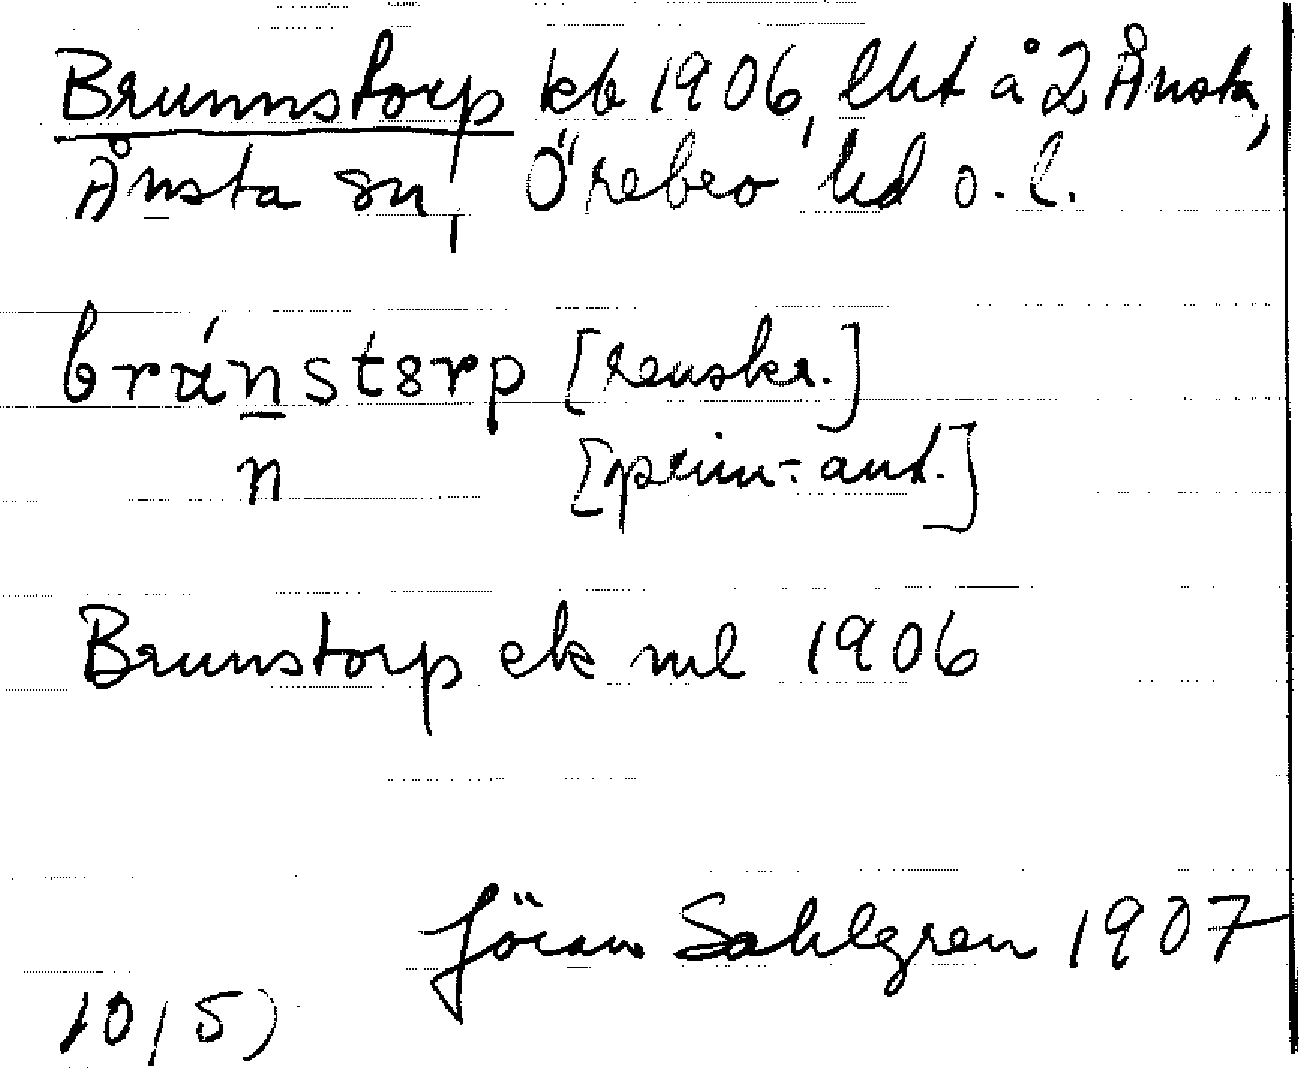 Brunnstorp kb 1906, lht å 2 Ånsta,
Ånsta sn, Örebro hd o. l.
brúnstorp [renskr.]
n [prim.-ant.]
Brunstorp ek ml 1906
Jöran Sahlgren 1907
10/5)